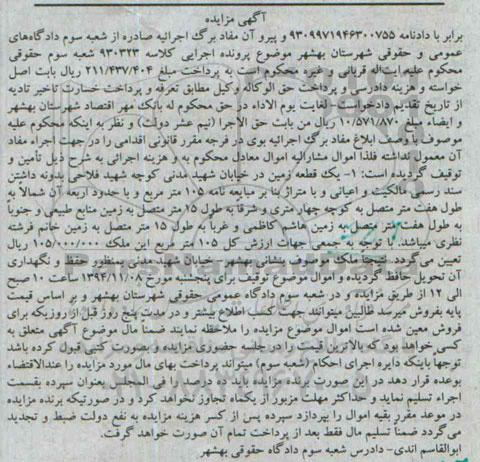 آگهی مزایده
برابر با دادنامه ۹۳۰۹۹۷۱۹۴۶۳۰۰۷۵۵ و پیرو آن مفاد برگ اجرائیه صادره از شعبه سوم دادگاه‌های
عمومی و حقوقی شهرستان بهشهر موضوع پرونده اجرایی کلاسه ۹۳۰۳۲۳ شعبه سوم حقوقی
محکوم علیه ایت‌اله قربانی و غیره محکوم است به پرداخت مبلغ ۲۱۱/۴۳۷/۴۰۴ ریال بابت اصل
خواسته و هزینه دادرسی و پرداخت حق الوکاله وکیل مطابق تعرفه و پرداخت خسارت تاخیر تادیه
از تاریخ تقدیم دادخواست لغایت یوم الاداء در حق محکوم له بانک مهر اقتصاد شهرستان بهشهر
و ایضاء مبلغ ۱۰/۵۷۱/۸۷۰ ریال من بابت حق الاجرا (نیم عشر دولت) و نظر به اینکه محکوم علیه
موصوف با وصف ابلاغ مفاد برگ اجرائیه بوی در فرجه مقرر قانونی اقدامی را در جهت اجراء مفاد
آن معمول نداشته فلذا اموال مشارالیه اموال معادل محکوم به و هزینه اجرائی به شرح ذیل تأمین و
توقیف گردیده است: ۱- یک قطعه زمین در خیابان شهید مدنی کوچه شهید فلاحی بدونه داشتن
سند رسمی مالکیت و اعیانی و با متراژ بنا بر مبایعه نامه ۱۰۵ متر مربع و با حدود اربعه آن شمالاً به
طول هفت متر متصل به کوچه چهار متری و شرقا به طول ۱۵ متر متصل به زمین منابع طبیعی و جنوباً
به طول هفت متر متصل به زمین هاشم کاظمی و غربا به طول ۱۵ متر متصل به زمین خانم فرشته
نظری میباشد. با توجه به جمعی جهات ارزش کل ۱۰۵ متر مربع این ملک ۱۰۵/۰۰۰/۰۰۰ ریال
تعیین می‌گردد. نتیجتا ملک موصوف بنشانی بهشهر - خیابان شهید مدنی بمنظور حفظ و نگهداری
آن تحویل حافظ گردیده و اموال موضوع توقیف برای پنجشنبه مورخ ۱۳۹۴/۱۱/۰۸ ساعت ۱۰ صبح
الی ۱۲ از طریق مزایده و در شعبه سوم دادگاه عمومی حقوقی شهرستان بهشهر و بر اساس قیمت
پایه بفروش میرسد طالبین میتوانند جهت کسب اطلاع بیشتر و در مدت پنج روز قبل از روزیکه برای
فروش معین شده است اموال موضوع مزایده را ملاحظه نمایند ضمناً مال موضوع آگهی متعلق به
کسی خواهد بود که بالاترین قیمت را در جلسه حضوری مزایده و بصورت کتبی قبول کرده باشد
توجها باینکه دایره اجرای احکام (شعبه سوم) میتواند پرداخت بهای مال مورد مزایده را عندالاقتضاء
بوعده قرار دهد در این صورت برنده مزایده باید ده درصد را فی المجلس بعنوان سپرده بقسمت
اجراء تسلیم نماید و حداکثر مهلت مزبور از یکماه تجاوز نخواهد کرد و در صورتیکه برنده مزایده
در موعد مقرر بقیه اموال را بپردازد سپرده پس از کسر هزینه مزایده به نفع دولت ضبط و تجدید
می‌گردد ضمناً تسلیم مال فقط بعد از پرداخت تمام آن صورت خواهد گرفت.
ابوالقاسم اندی- دادرس شعبه سوم دادگاه حقوقی بهشهر